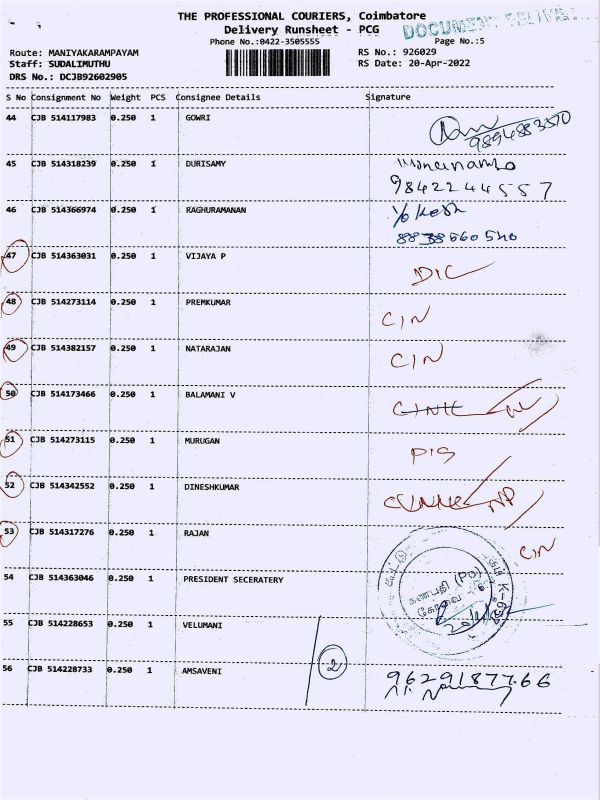 THE PROFESSIONAL COURIERS, Coimbatore
Delivery Runsheet - PCG
DOCUMENT
Phone No.:0422-3505555
Page No.:5
Route: MANIYAKARAMPAYAM
RS No.: 926029
Staff: SUDALIMUTHU
RS Date: 20-Apr-2022
DRS No.: DCJB92602905
S No Consignment No Weight PCS Consignee Details Signature
44 CJB 514117983 0.250 1 GOWRI
9894883570
45 CJB 514318239 0.250 1 DURISAMY
9842244557
46 CJB 514366974 0.250 1 RAGHURAMANAN Yokesh
8838660540
47 CJB 514363031 0.250 1 VIJAYA P DIC
48 CJB 514273114 0.250 1 PREMKUMAR CIN
49 CJB 514382157 0.250 1 NATARAJAN CIN
50 CJB 514173466 0.250 1 BALAMANI V
51 CJB 514273115 0.250 1 MURUGAN
52 CJB 514342552 0.250 1 DINESHKUMAR
53 CJB 514317276 0.250 1 RAJAN CIN
54 CJB 514363046 0.250 1 PRESIDENT SECERATERY
கணபதி (Po)
கோவை
55 CJB 514228653 0.250 1 VELUMANI
56 CJB 514228733 0.250 1 AMSAVENI 2 9629187766